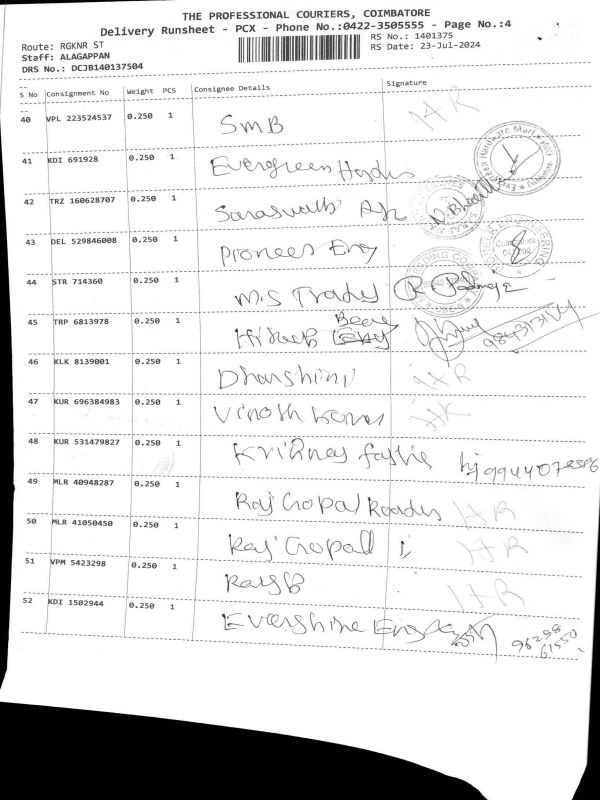 THE PROFESSIONAL COURIERS, COIMBATORE
Delivery Runsheet - PCX - Phone No.:0422-3505555 - Page No.:4
Route: RGKNR ST
RS No.: 1401375
Staff: ALAGAPPAN
RS Date: 23-Jul-2024
DRS No.: DCJB140137504
S No Consignment No Weight PCS Consignee Details Signature
40 VPL 223524537 0.250 1 SMB HR
41 KDI 691928 0.250 1 Evergreen
42 TRZ 160628707 0.250 1
43 DEL 529846008 0.250 1 Pioneer Eng
44 STR 714360 0.250 1 M.S Trades R.
45 TRP 6813978 0.250 1 Hitech
46 KLK 8139001 0.250 1 Dharshini HR
47 KUR 696384983 0.250 1 Vinoth HR
48 KUR 531479827 0.250 1
49 MLR 40948287 0.250 1 Raj Gopal HR
50 MLR 41050450 0.250 1 Raj Gopal HR
51 VPM 5423298 0.250 1 HR
52 KDI 1502944 0.250 1 Evershine
96298
61550